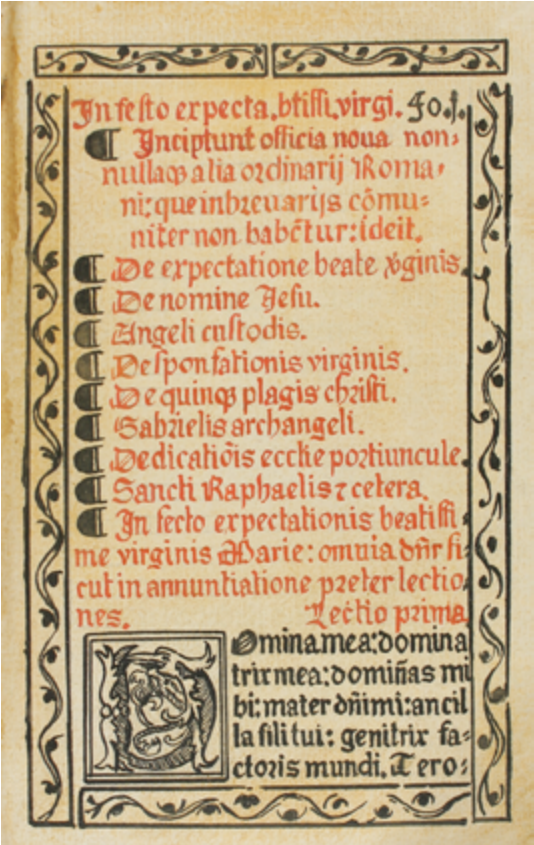 In festo expecta.btissi.virgi. Fo.j.
¶ Incipiunt officia noua non-
nullaqꝫ alia ordinarij Roma-
ni: que in breuarijs cõmu-
niter non habẽtur: ideit.
¶ De expectatione beate v̾ginis.
¶ De nomine Jesu.
¶ Angeli custodis.
¶ Desponsationis virginis.
¶ De quinqꝫ plagis christi.
¶ Gabrielis archangeli.
¶ Dedicatiõis ecclie portiuncule.
¶ Sancti Raphaelis ⁊ cetera.
¶ In fecto expectationis beatissi
me virginis Marie: omnia dñr si
cut in annuntiatione preter lectio
nes. Lectio prima
Domina mea: domina
trix mea: domiñas mi
bi: mater dñi mi: ancil
la filii tui: genitrix fa-
ctoris mundi. Te ro: